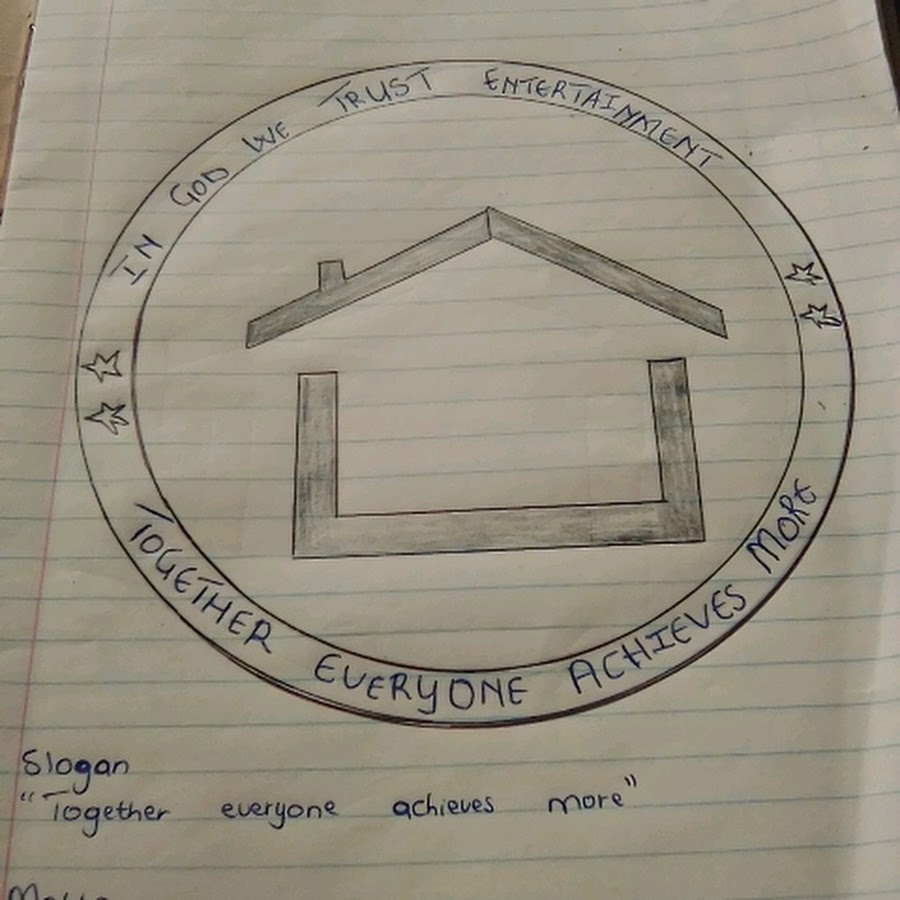 IN GOD WE TRUST ENTERTAINMENT
TOGETHER EVERYONE ACHIEVES MORE
Slogan
"Together everyone achieves more"